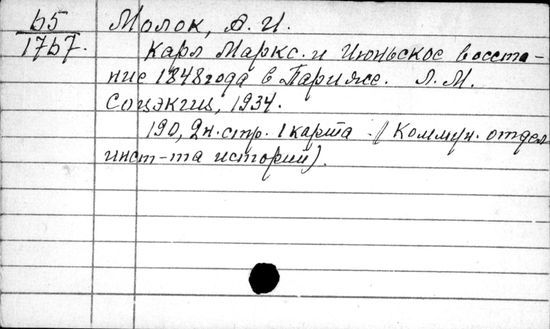 b5 Молок, А. И.
1767. Карл Маркс и Июньское восста-
ние 1848 года в Париже. Л. М.
Соцэкгиз, 1934.
190, 2 н. стр. 1 карта. (Коммун. отдел
инст-та истории).